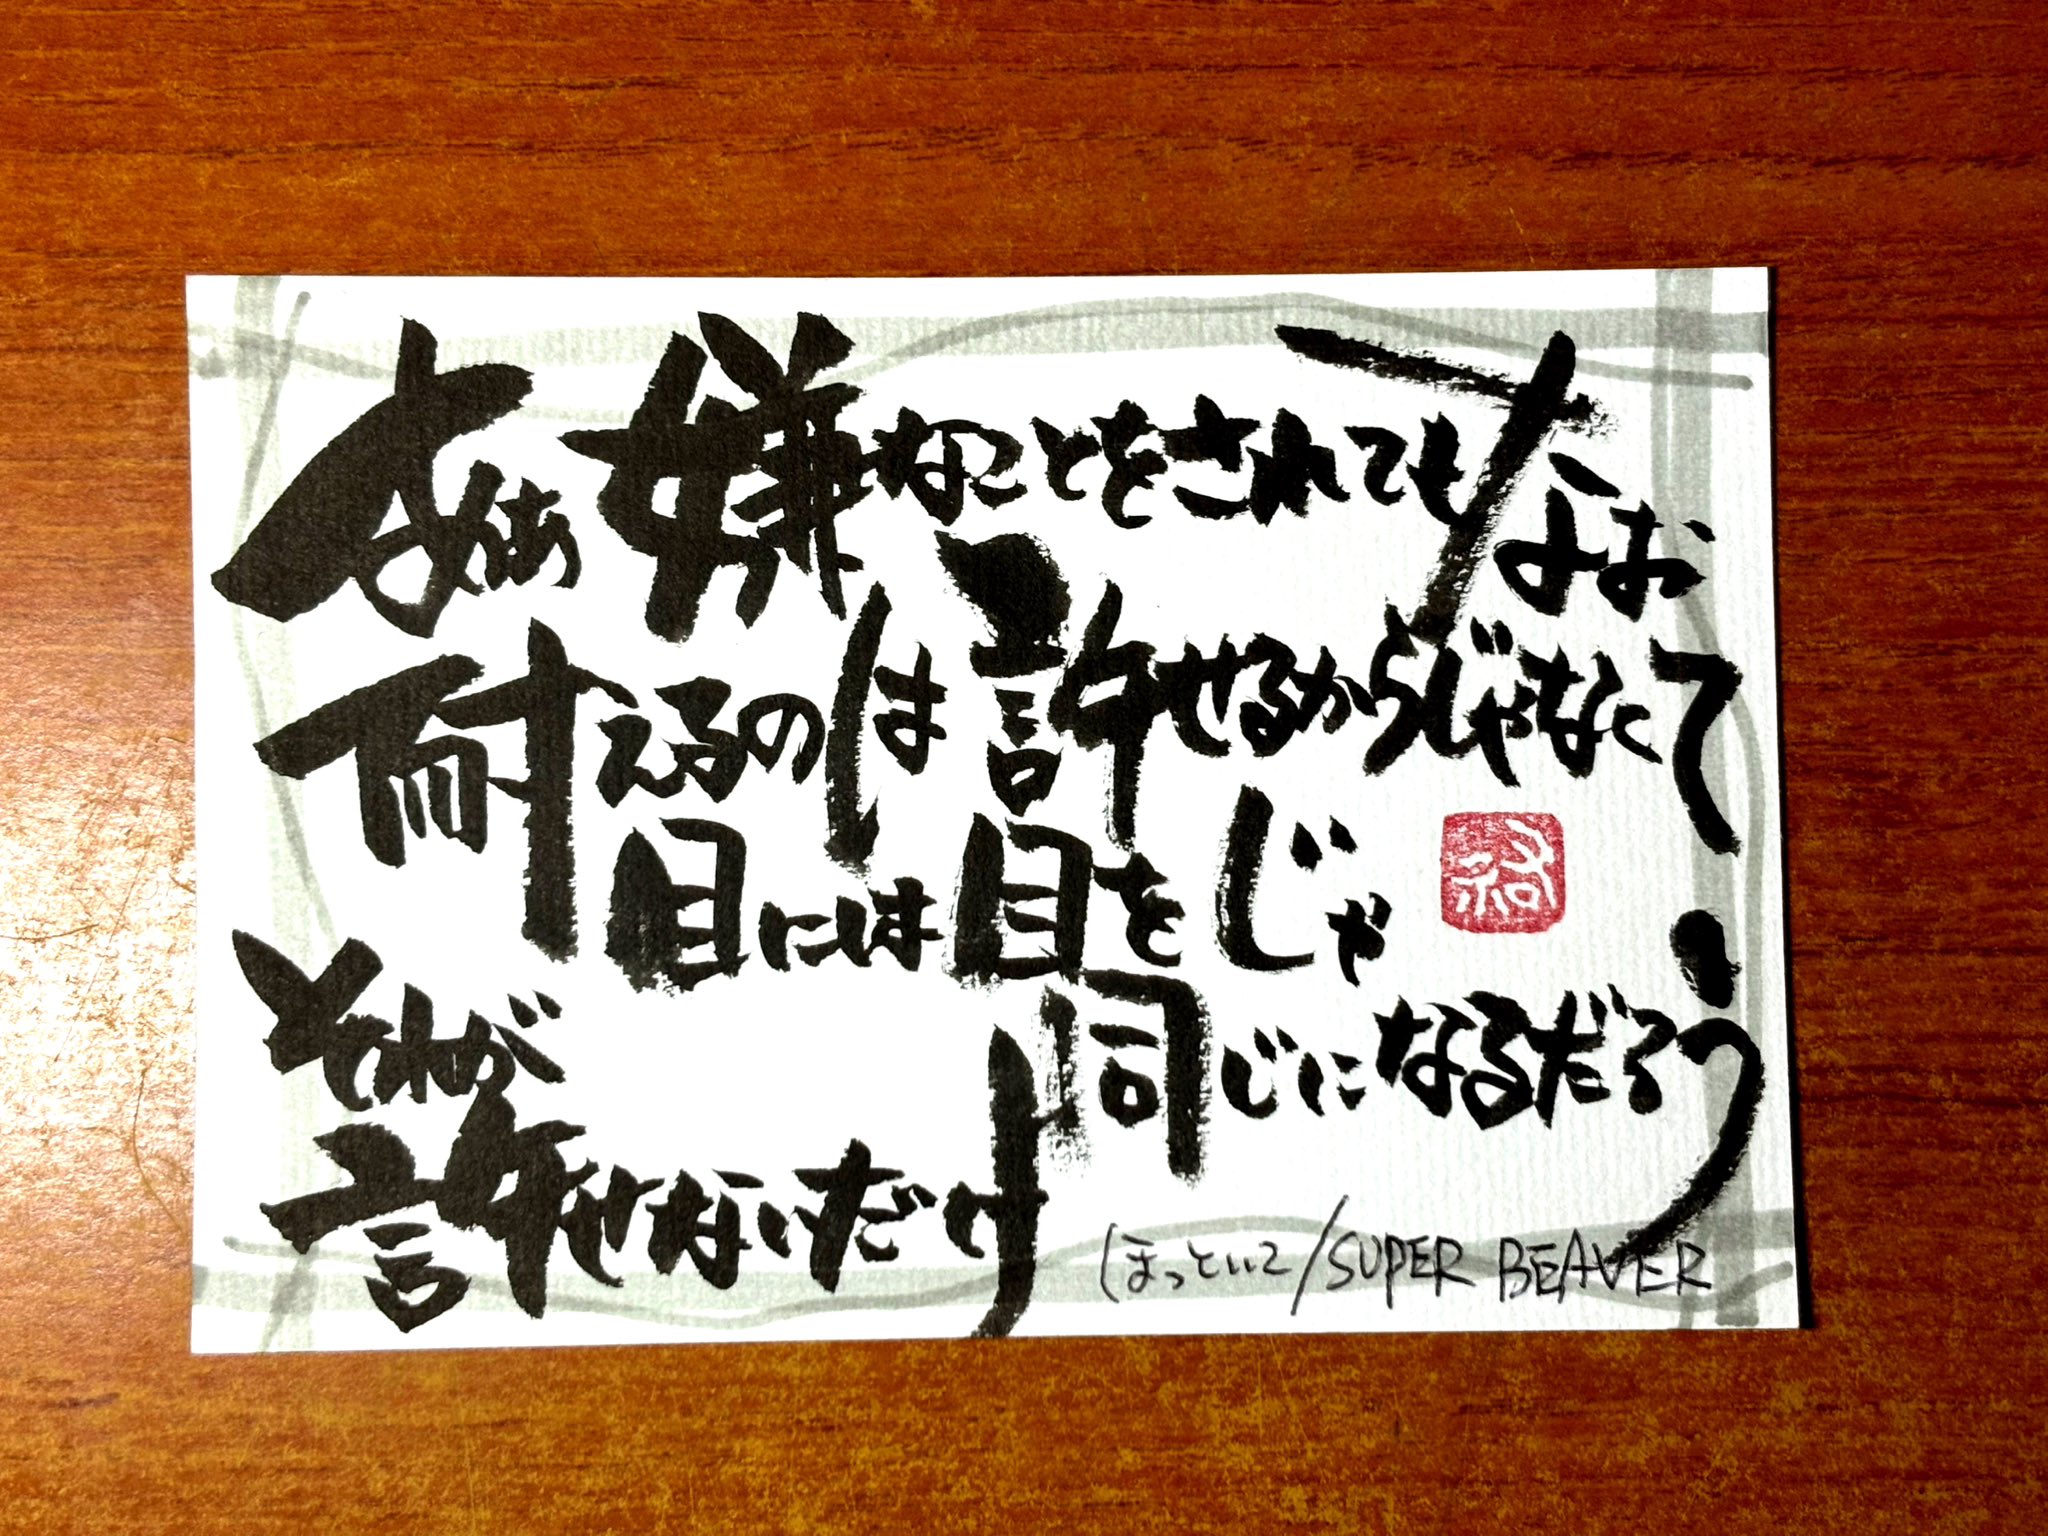 ああ嫌なことをされてもなお
耐えるのは許せるからじゃなくて
目には目をじゃ
同じになるだろう
それが
許せないだけ
ほっといて/SUPER BEAVER